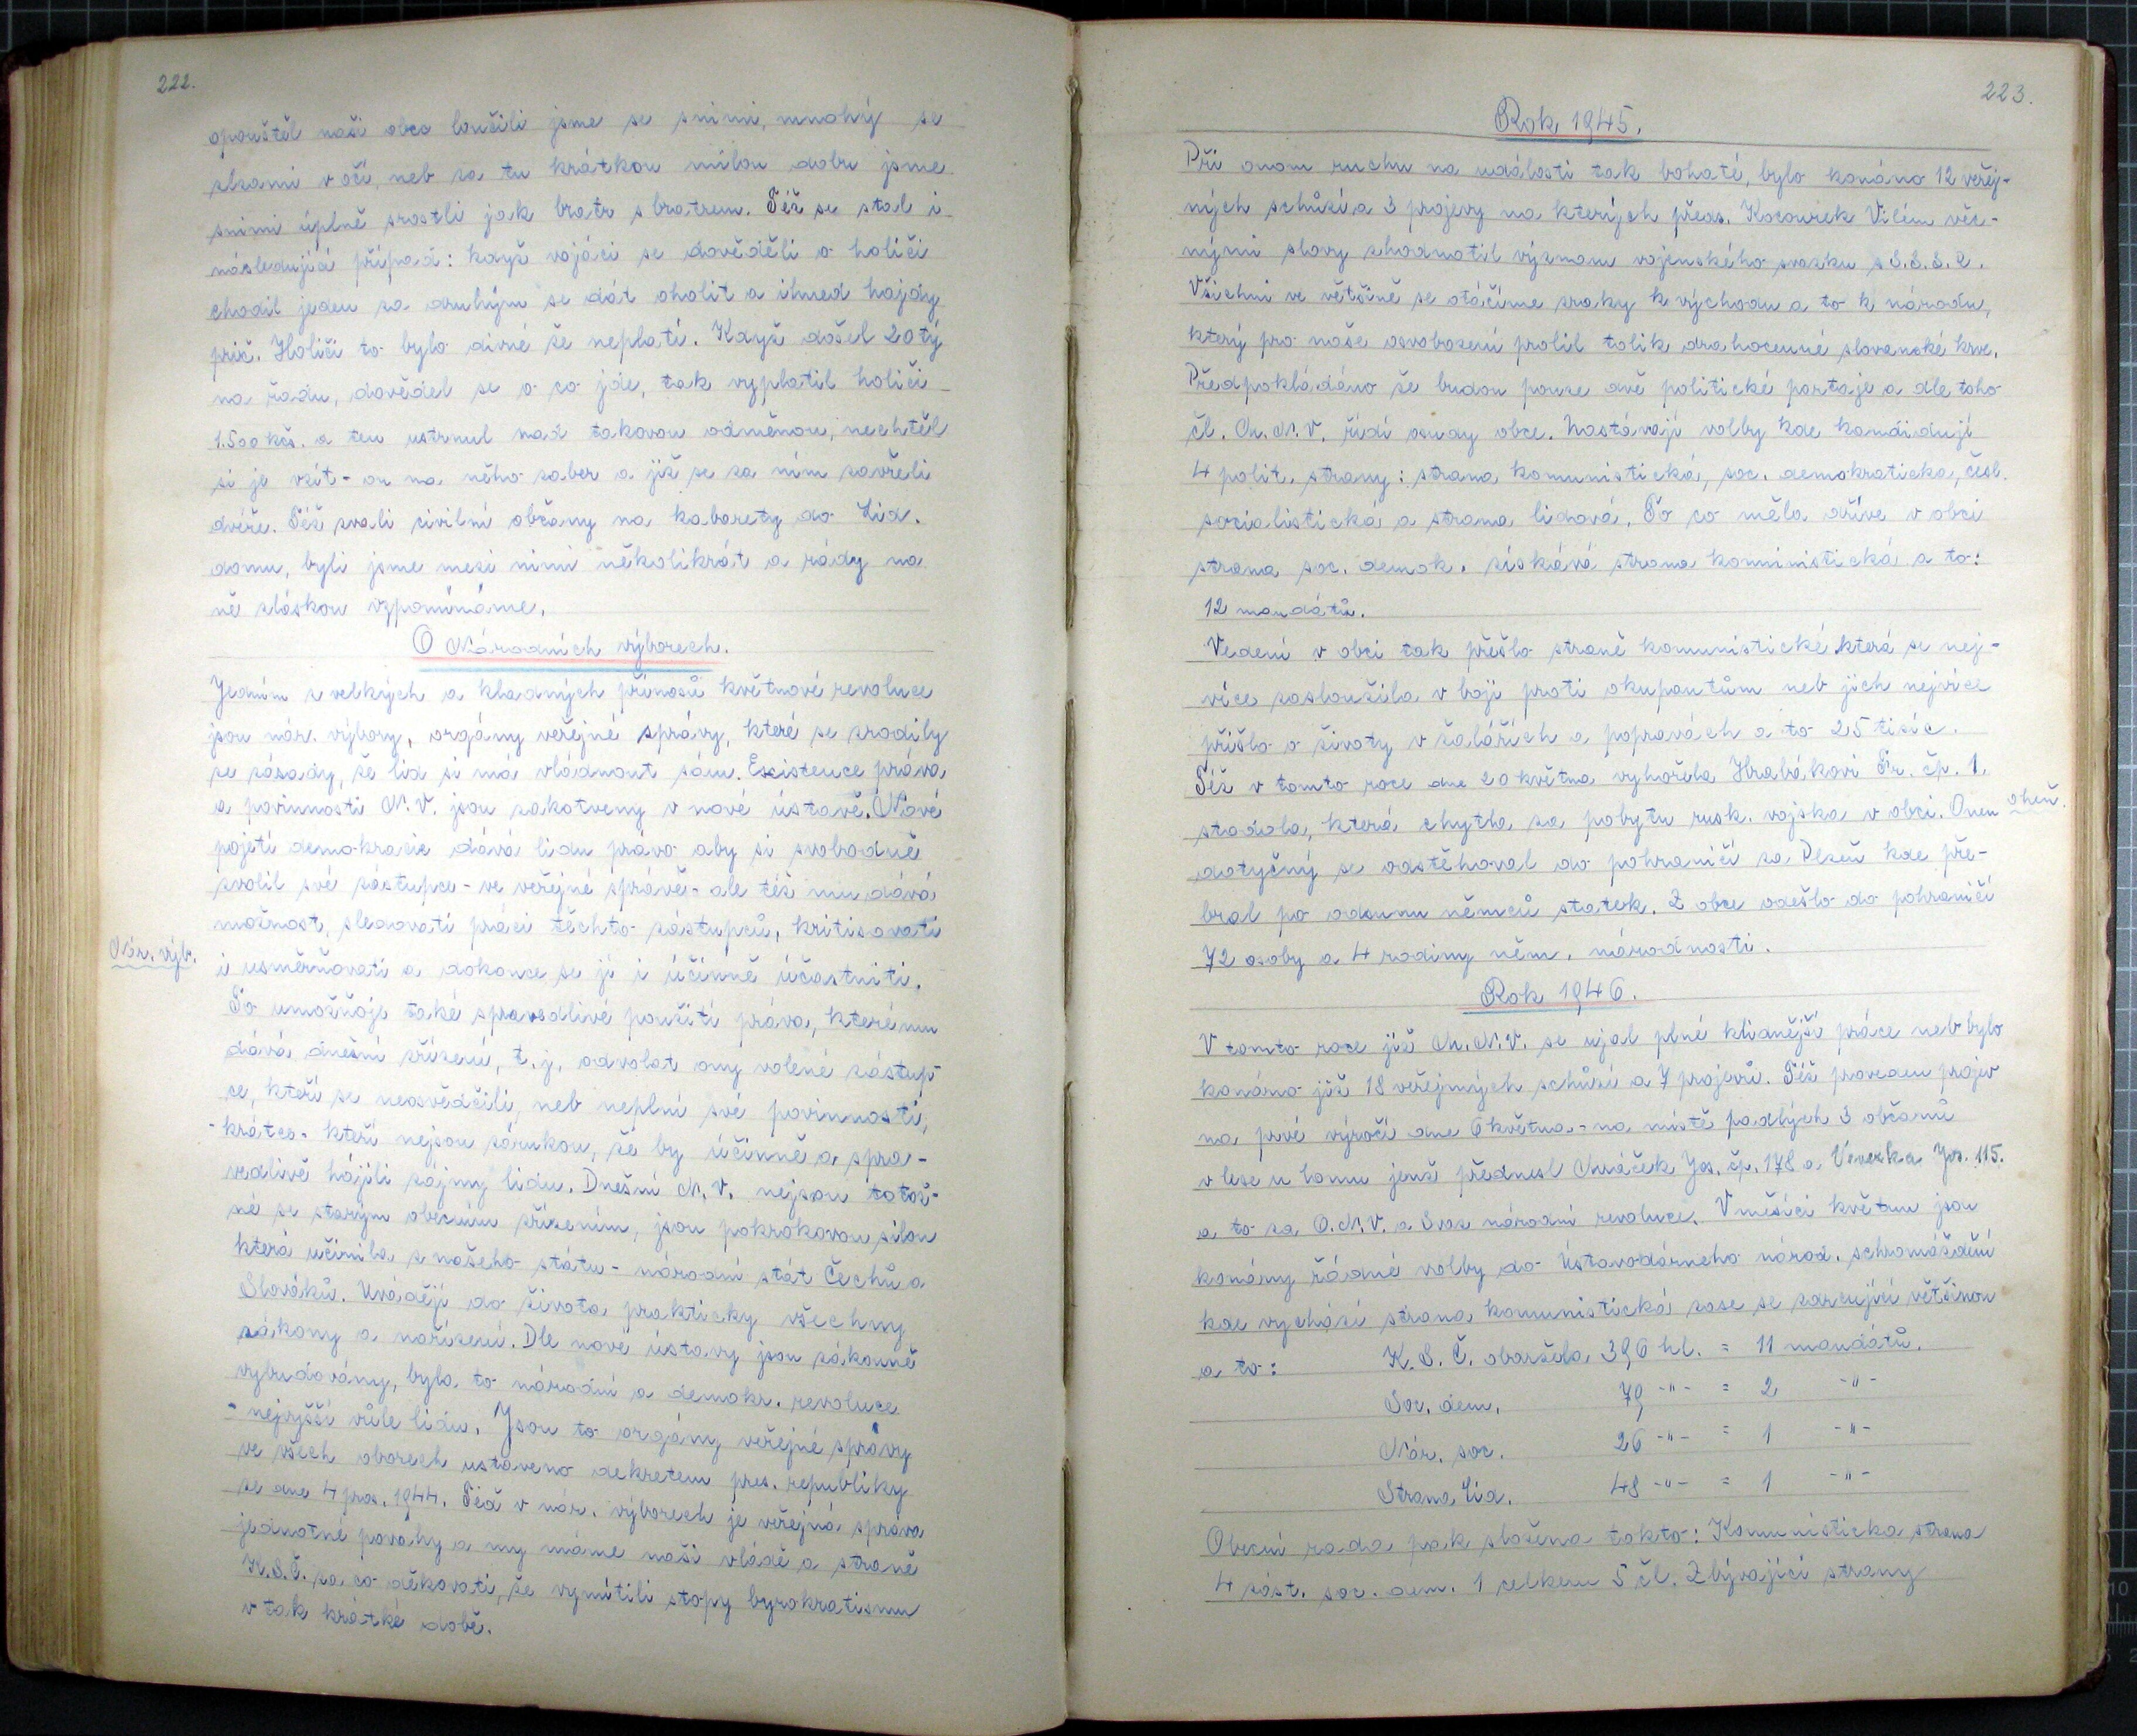 222.
opouštěl naši obec loučili jsme se snimi, mnohý se
slzami v očí, neb za tu krátkou milou dobu jsme
snimi úplně srostli jak bratr s bratrem. Též se stal i
následující případ: když vojáci se dověděli o holiči
chodil jeden za druhým se dát oholit a ihned hajdy
prič. Holiči to bylo divné že neplatí. Když došel 20tý
na řadu, dověděl se o co jde, tak vyplatil holiči
1.500 kčs. a ten ustrnul nad takovou odměnou, nechtěl
si je vzít - on na něho zaber a již se za ním zavřeli
dvéře. Též zvali civilní občany na kabarety do Lid.
domu, byli jsme mezi nimi několikrát a rády na
ně sláskou vzpomínáme.
O Národních výborech.
Jedním z velkých a kladných přínosů květnové revoluce
jsou nár. výbory, orgány veřejné správy, které se zrodily
ze zásady, že lid si má vládnout sám. Existence práva
a povinnosti N.V. jsou zakotveny v nové ústavě. Nové
pojetí demokracie dává lidu právo aby si svobodně
zvolil své zástupce - ve veřejné správě - ale též mu dává
možnost, sledovati práci těchto zástupců, kritisovati
Nár. výb.
i usměrňovati a dokonce se jí i účinně účastniti.
To umožňuje také spravedlivé použití práva, které mu
dává dnešní zřízení, t.j. odvolat ony volené zástup-
ce, kteří se neosvědčili, neb neplní své povinnosti,
- krátce - kteří nejsou zárukou, že by účinně a spra-
vedlivě hájili zájmy lidu. Dnešní N.V. nejsou totož-
né se starým obecním zřízením, jsou pokrokovou silou
která učinila z našeho státu - národní stát Čechů a
Slováků. Uvádějí do života prakticky všechny
zákony a nařízení. Dle nové ústavy jsou zákonně
vybudovány, byla to národní a demokr. revoluce
- nejvyšší vůle lidu. Jsou to orgány veřejné správy
ve všech oborech ustaveno dekretem pres. republiky
ze dne 4 pros. 1944. Též v nár. výborech je veřejná správa
jednotné povahy a my máme naší vládě a straně
K.S.Č. za co děkovati, že vymítili stopy byrokratismu
v tak krátké době.
223.
Rok 1945.
Při onom ruchu na události tak bohaté, bylo konáno 12 veřej-
ných schůzí a 3 projevy na kterých předs. Kocourek Vilém věc-
nými slovy zhodnotil význam vojenského svazku s S.S.S.R.
Všichni ve většině se otáčíme zraky k východu a to k národu,
který pro naše osvobození prolil tolik drahocenné slovanské krve.
Předpokládáno že budou pouze dvě politické partaje a dle toho
čl. M.N.V. řídí osudy obce. Nastávají volby kde kandidují
4 polit. strany: strana komunistická, soc. demokraticka, česl.
socialistická a strana lidová. To co měla dříve v obci
strana soc. demok. získává strana komunistická a to:
12 mandátů.
Vedení v obci tak přešlo straně komunistické která se nej-
více zasloužila v boji proti okupantům neb jich nejvíce
přišlo o životy v žalářích a popravách a to 25 tisíc.
Též v tomto roce dne 20 května vyhořela Hrabákovi Fr. čp. 1.
stodola, která chytla za pobytu rusk. vojska v obci. Onen
oheň.
dotyčný se odstěhoval do pohraničí za Plzeň kde pře-
bral po odsunu němců statek. Z obce odešlo do pohraničí
72 osoby a 4 rodiny něm. národnosti.
Rok 1946.
V tomto roce již M.N.V. se ujal plné klidnější práce neb bylo
konáno již 18 veřejných schůzí a 7 projevů. Též proveden projev
na prvé výročí dne 6 května - na místě padlých 3 občanů
v lese u lomu jenž přednesl Mráček Jos. čp. 178 a Veverka Jos. 115.
a to za O.N.V. a Svaz národní revoluce. V měsíci květnu jsou
konány řádné volby do Ústavodárneho národ. schromáždění
kde vychází strana komunistická zase se zdrcující většinou
a to: K.S.Č. obdržela 396 hl. = 11 mandátů.
Soc. dem. 79 -"- = 2 -"-
Nár. soc. 26 -"- = 1 -"-
Strana lid. 48 -"- = 1 -"-
Obecní rada pak složena takto: Komunisticka strana
4 zást. soc. dem. 1 celkem 5 čl. Zbývající strany